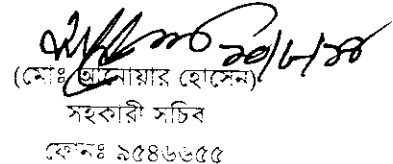 ২০/৮/১৪
(মোঃ আনোয়ার হোসেন)
সহকারী সচিব
ফোনঃ ৯৫৪৬৬৫৫